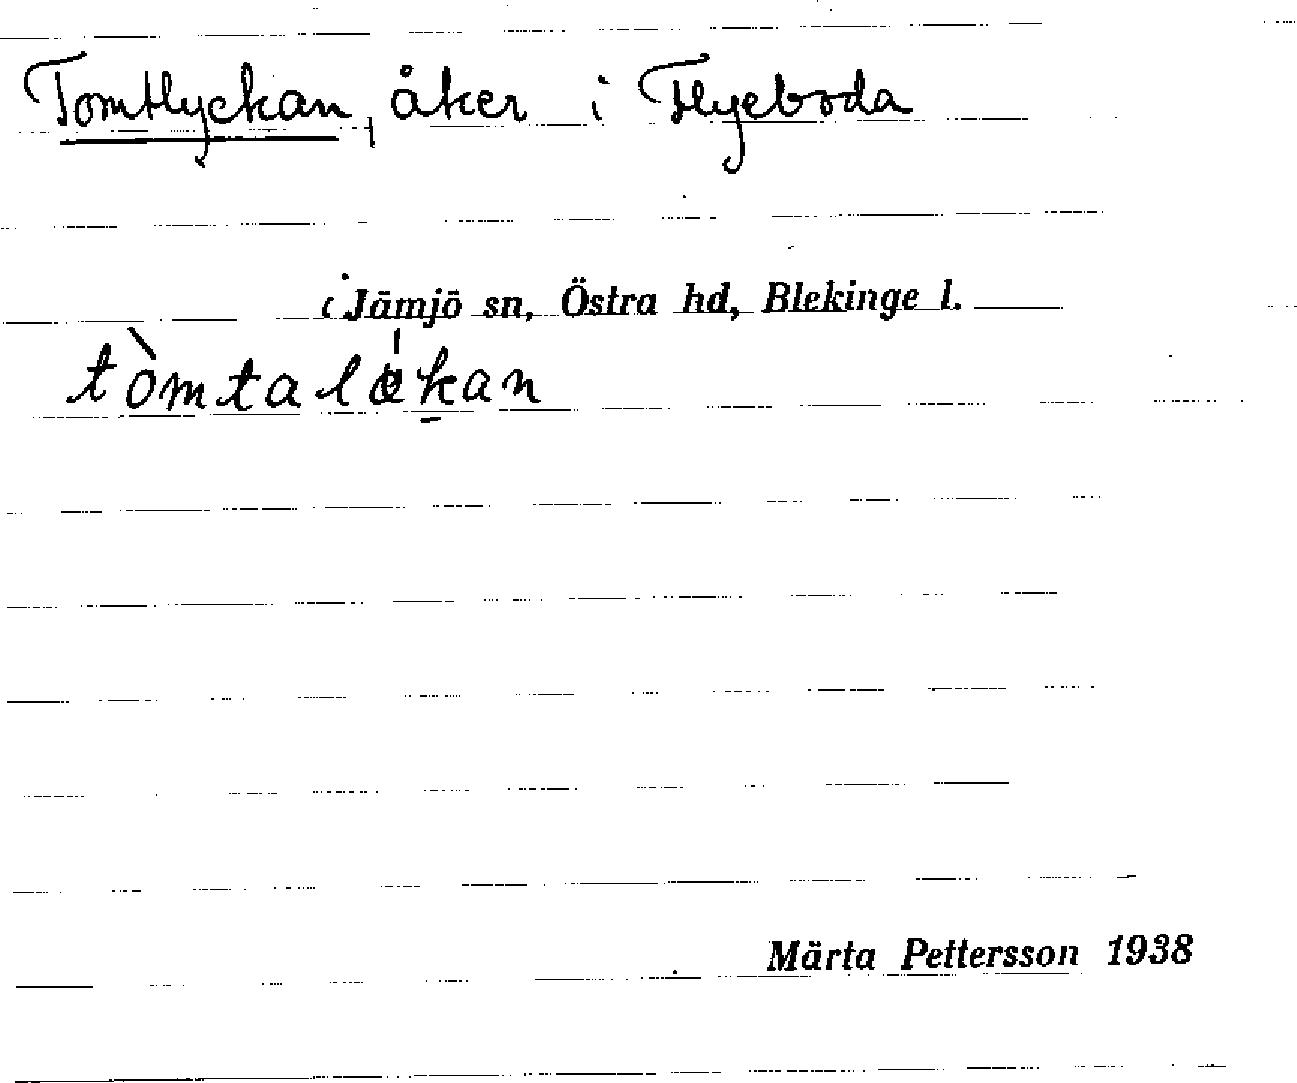 Tomtlyckan, åker i Flyeboda
i Jämjö sn, Östra hd, Blekinge l.
tòmtaløkan
Märta Pettersson 1938